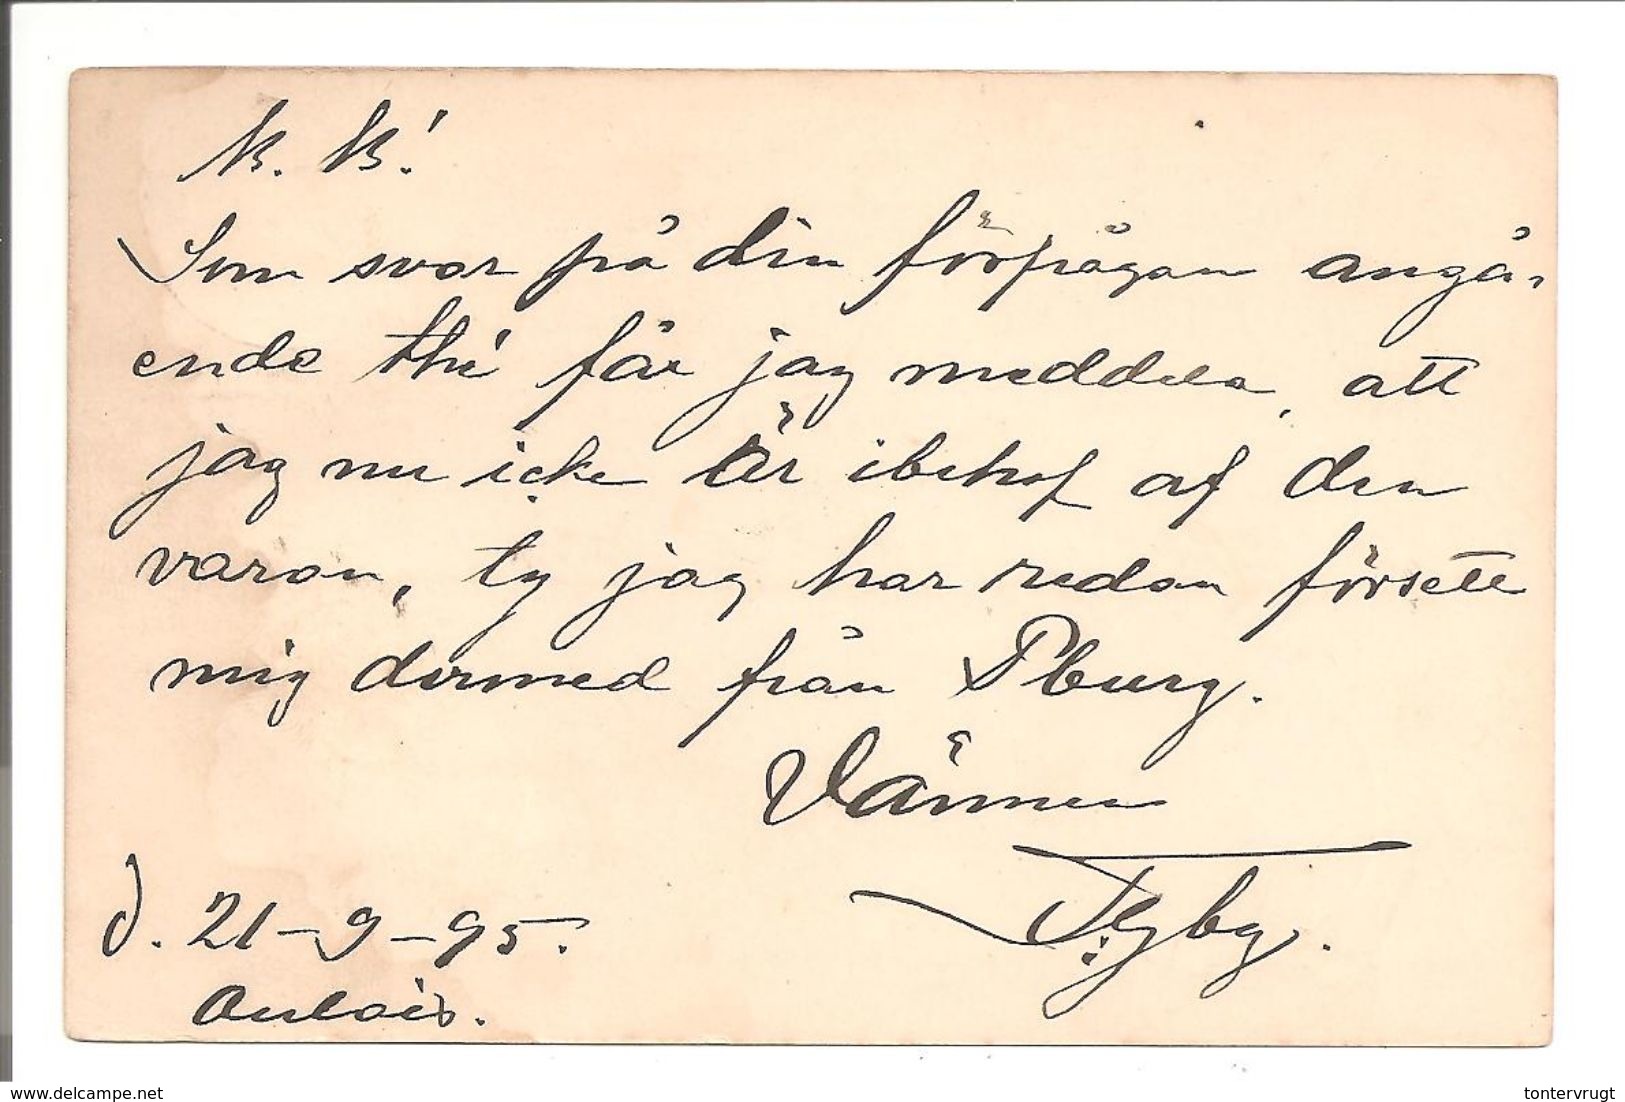 B. B!
Som svar på din förfrågan angå-
ende thé får jag meddela, att
jag nu icke är i behof af den
varan, ty jag har redan försett
mig dermed från Pburg.
Vännen
d. 21-9-95.
Oulais.
www.delcampe.net
tontervrugt